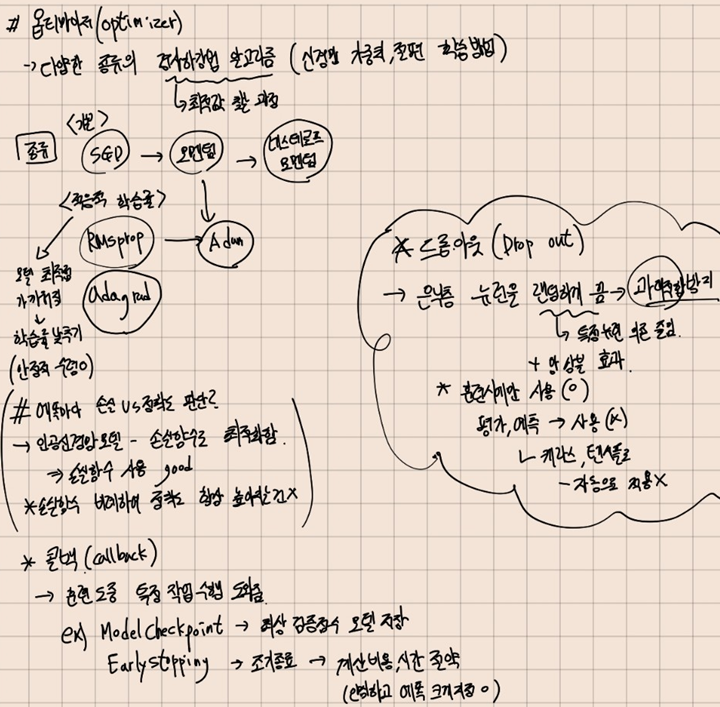 # 옵티마이저(optimizer)
→ 다양한 종류의 경사하강법 알고리즘 (신경망 가중치, 절편 학습방법)
↳ 최적값 찾는 과정
종류
<기본>
SGD → 모멘텀 → 네스테로프 모멘텀
<적응적 학습률>
RMSprop → Adam
Adagrad
모델 최적점
가까워짐
↓
학습률 낮추기
(안정적 수렴o)
# 에폭마다 손실 vs 정확도 판단?
→ 인공신경망모델 - 손실함수로 최적화함.
⇒ 손실함수 사용 good
*손실함수 비례하여 정확도 항상 높아진건x
* 콜백(callback)
→ 훈련 도중 특정 작업 수행 도와줌.
ex) Modelcheckpoint → 최상 검증점수 모델 저장
Earlystopping → 조기종료 → 계산비용, 시간 절약
(안심하고 에폭 크게지정 o)
* 드롭아웃 (Drop out)
→ 은닉층 뉴런을 랜덤하게 끔 → 과대적합방지
↳ 특정뉴런 의존 줄임.
+ 앙상블 효과.
* 훈련시에만 사용(o)
평가, 예측 → 사용(x)
↳ 케라스, 텐서플로
- 자동으로 적용x